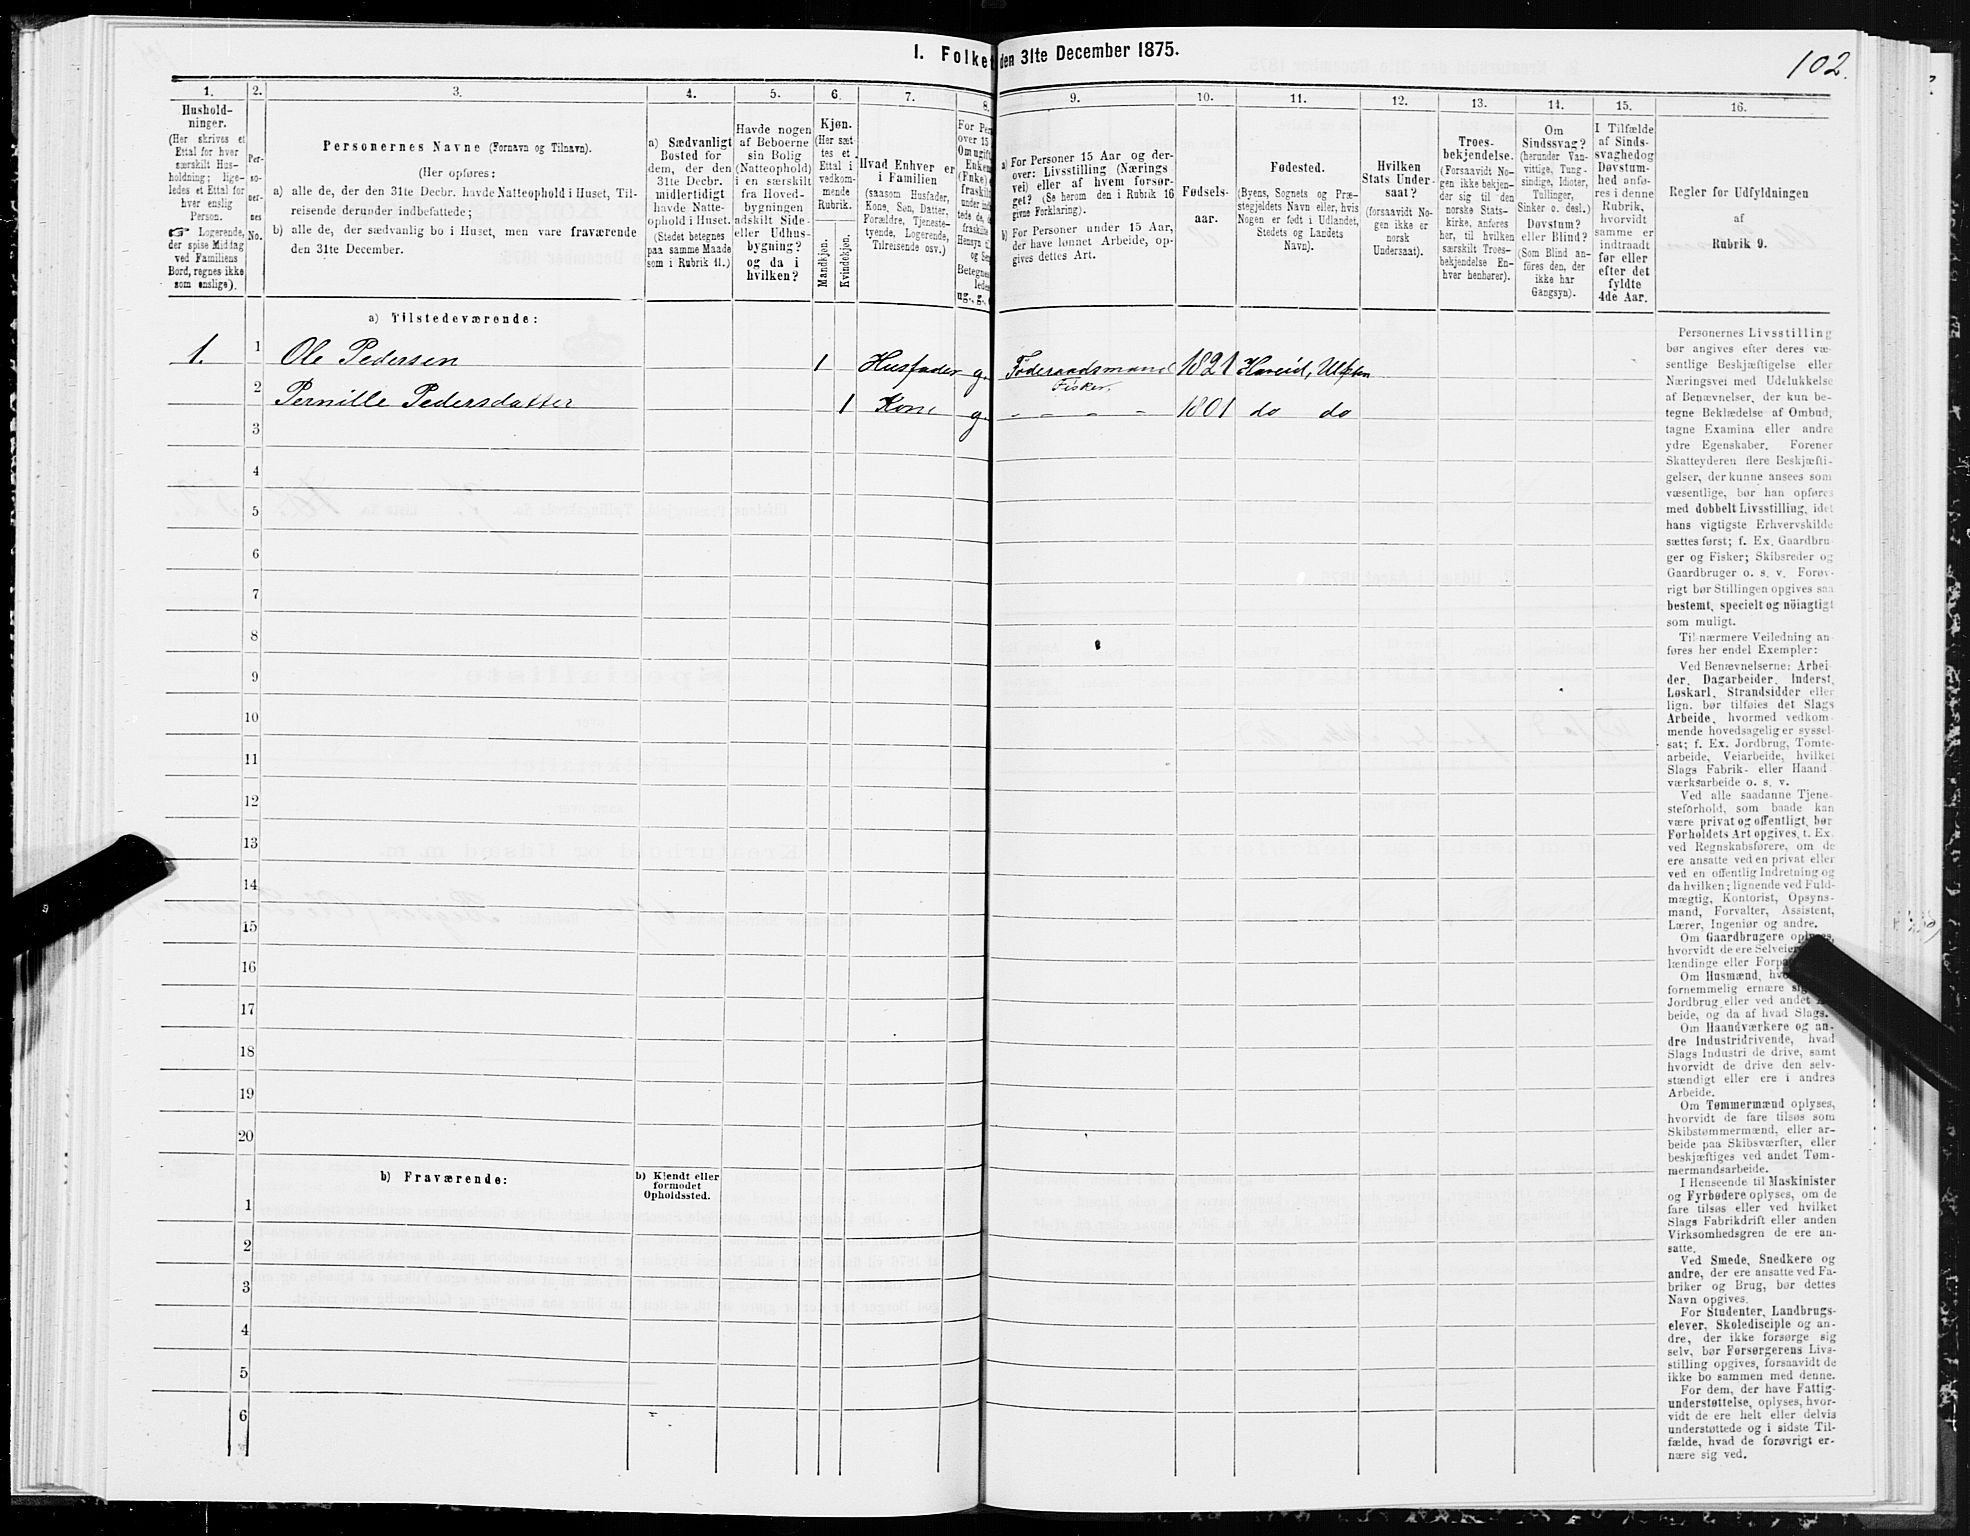 I. Folke
den 31te December 1875.
102.
1.
2.
3.
4.
5.
6.
7.
8.
9.
10.
11.
12.
13.
14.
15.
16.
Hushold-
ninger.
(Her skrives et
Ettal for hver
særskilt Hus-
holdning; lige-
ledes et Ettal for
hver enslig
Person.
☞ Logerende,
der spise Middag
ved Familiens
Bord, regnes ikke
som enslige).
Per-
so-
ner-
nes
No.
Personernes Navne (Fornavn og Tilnavn).
(Her opføres:
a) alle de, der den 31te Decbr. havde Natteophold i Huset, Til-
reisende derunder indbefattede;
b) alle de, der sædvanlig bo i Huset, men vare fraværende
den 31te December.
a) Sædvanligt
Bosted for
dem, der den
31te Decbr.
midlertidigt
havde Natte-
ophold i Huset.
(Stedet betegnes
paa samme Maade
som i Rubrik 11.)
Havde nogen
af Beboerne
sin Bolig
(Natteophold)
i en særskilt
fra Hoved-
bygningen
adskilt Side-
eller Udhus-
bygning?
og da i
hvilken?
Kjøn.
(Her sæt-
tes et
Ettal i
vedkom-
mende
Rubrik.
Mandkjøn.
Kvindekjøn.
Hvad Enhver er
i Familien
(saasom Husfader,
Kone, Søn, Datter,
Forældre, Tjeneste-
tyende, Logerende,
Tilreisende osv.)
For Per
over 15
Om ugift
Enkem
(Enke)
fraskil
ug., g.,
a) For Personer 15 Aar og der-
over: Livsstilling (Nærings
vei) eller af hvem forsør-
get? (Se herom den i Rubrik 16
givne Forklaring).
b) For Personer under 15 Aar,
der have lønnet Arbeide, op-
gives dettes Art.
Fødsels-
aar.
Fødested.
(Byens, Sognets og Præ-
stegjeldets Navn eller, hvis
Nogen er født i Udlandet,
Stedets og Landets
Navn).
Hvilken
Stats Under-
saat?
(forsaavidt No-
gen ikke er
norsk
Undersaat).
Troes-
bekjendelse.
(Forsaavidt No-
gen ikke bekjen-
der sig til den
norske Stats-
kirke, anføres
her, til hvilken
særskilt Troes-
bekjendelse En-
hver henhører).
Om
Sindssvag?
(herunder Van-
vittige, Tung-
sindige, Idioter,
Tullinger,
Sinker o. desl.)
Døvstum?
eller Blind?
(Som Blind an-
føres den, der
ikke har
Gangsyn).
I Tilfælde
af Sinds-
svaghed og
Døvstum-
hed anfø-
res i denne
Rubrik,
hvorvidt
samme er
indtraadt
før eller
efter det
fyldte
4de Aar.
Regler for Udfyldningen
af
Rubrik 9.
a) Tilstedeværende:
1. 1 Ole Pedersen 1 Husfader g. Føderaadsmand 1821 Hareid, Ulfsten
Fisker.
2 Pernille Pedersdatter 1 Kone g. - - - - 1801 do do
3
4
5
6
7
8
9
10
11
12
13
14
15
16
17
18
19
20
b) Fraværende:
b) Kjendt eller
formodet
Opholdssted.
1
2
3
4
5
6
Personernes Livsstilling
bør angives efter deres væ-
sentlige Beskjæftigelse eller
Næringsvei med Udelukkelse
af Benævnelser, der kun be-
tegne Beklædelse af Ombud,
tagne Examina eller andre
ydre Egenskaber. Forener
Skatteyderen flere Beskjæfti-
gelser, der kunne ansees som
væsentlige, bør han opføres
med dobbelt Livsstilling, idet
hans vigtigste Erhvervskilde
sættes først; f. Ex. Gaardbru-
ger og Fisker; Skibsreder og
Gaardbruger o. s. v. Forøv-
rigt bør Stillingen opgives saa
bestemt, specielt og nöiagtigt
som muligt.
Til nærmere Veiledning an-
føres her endel Exempler:
Ved Benævnelserne: Arbei-
der, Dagarbeider, Inderst,
Løskarl, Strandsidder eller
lign. bør tilføies det Slags
Arbeide, hvormed vedkom-
mende hovedsagelig er syssel-
sat; f. Ex. Jordbrug, Tomte-
arbeide, Veiarbeide, hvilket
Slags Fabrik- eller Haand
værksarbeide o. s. v.
Ved alle saadanne Tjene-
steforhold, som baade kan
være privat og offentligt, bør
Forholdets Art opgives, t. Ex.
ved Regnskabsførere, om de
ere ansatte ved en privat eller
ved en offentlig Indretning og
da hvilken; lignende ved Fuld-
mægtig, Kontorist, Opsyns-
mand, Forvalter, Assistent,
Lærer, Ingeniør og andre.
Om Gaardbrugere oplyses,
hvorvidt de ere Selveier
lændinge eller Forpa
Om Husmænd,
fornemmelig ernære
Jordbrug eller ved andet
beide, og da af hvad Slags.
Om Haandværkere og an-
dre Industridrivende, hvad
Slags Industri de drive, samt
hvorvidt de drive den selv-
stændigt eller ere i andres
Arbeide.
Om Tømmermænd oplyses,
hvorvidt de fare tilsøs som
Skibstømmermænd, eller ar-
beide paa Skibsværfter, eller
beskjæftiges ved andet Tøm-
mermandsarbeide.
I Henseende til Maskinister
og Fyrbødere oplyses, om de
fare tilsøs eller ved hvilket
Slags Fabrikdrift eller anden
Virksomhedsgren de ere an-
satte.
Ved Smede, Snedkere og
andre, der ere ansatte ved Fa-
briker og Brug, bør dettes
Navn opgives.
For Studenter, Landbrugs-
elever, Skoledisciple og an-
dre, der ikke forsørge sig
selv, bør Forsørgerens Livs-
stilling opgives, forsaavidt de
ikke bo sammen med denne.
For dem, der have Fattig-
understøttelse, oplyses, hvor-
vidt de ere helt eller delvis
understøttede og i sidste Til-
fælde, hvad de forøvrigt er-
nære sig ved.